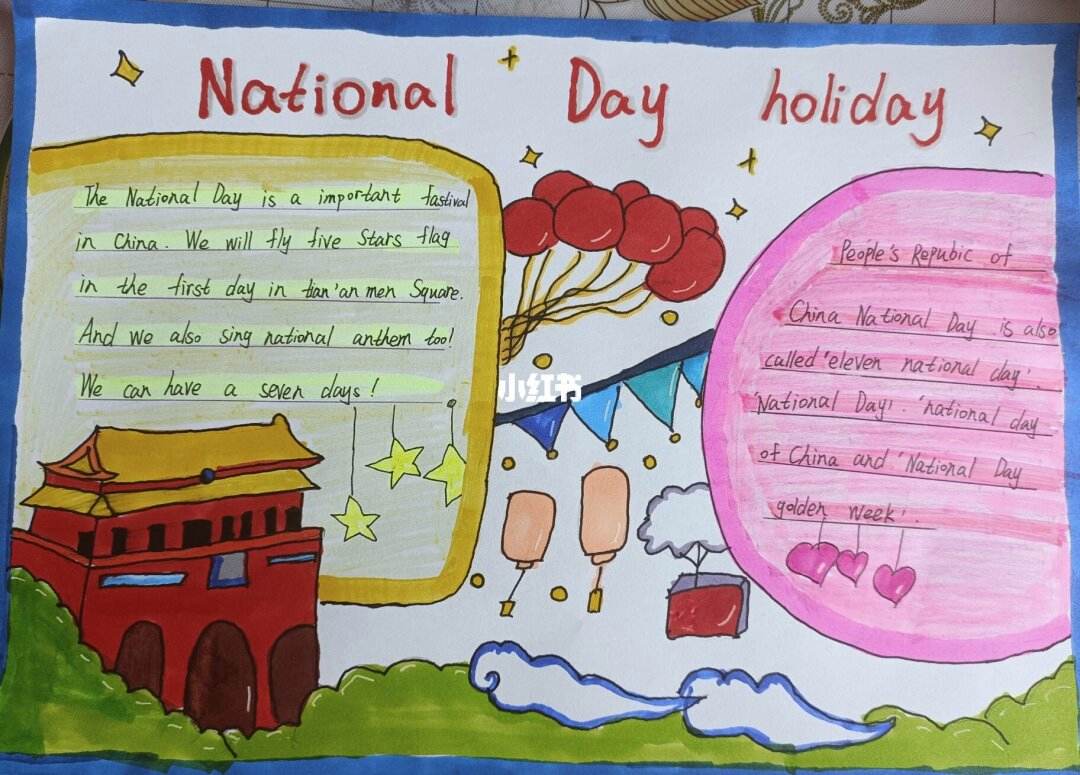 National Day holiday
The National Day is a important fastival
in China. We will fly five Stars flag
in the first day in tian'an men Square.
And we also sing national anthem too!
We can have a seven days!
小红书
People's Repubic of
China National Day is also
called 'eleven national day'.
National Day'. 'national day
of China and 'National Day
golden week'.